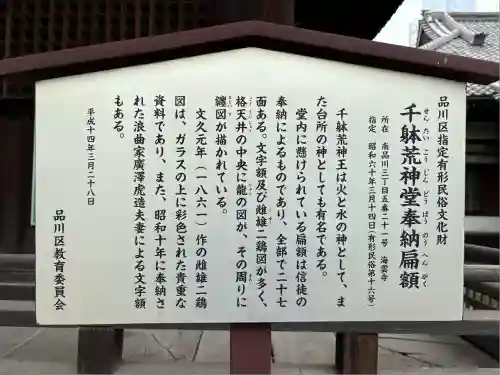 品川区指定有形民俗文化財
千躰荒神堂奉納扁額
せんたいこうじんどうほうのうへんがく
所在 南品川三丁目五番二十一号 海雲寺
指定 昭和六十年三月十四日(有形民俗第十六号)
千躰荒神王は火と水の神として、ま
た台所の神としても有名である。
堂内に懸けられている扁額は信徒の
奉納によるものであり、全部で二十七
面ある。文字額及び雌雄二鶏図が多く、
格天井の中央に龍の図が、その周りに
纏図が描かれている。
文久元年(一八六一)作の雌雄二鶏
図は、ガラスの上に彩色された貴重な
資料であり、また、昭和十年に奉納さ
れた浪曲家廣澤虎造夫妻による文字額
もある。
平成十四年三月二十八日
品川区教育委員会